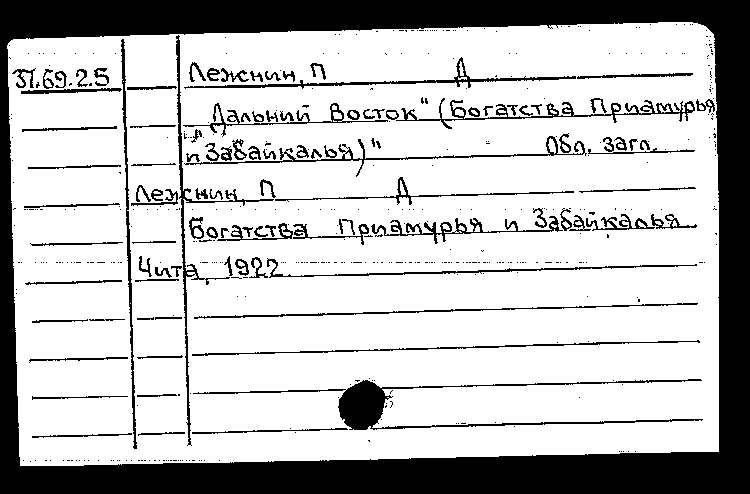 37.69.25 Лежнин, П Д
„Дальний Восток" (Богатства Приамурья
и Забайкалья)" Обл. загл.
Лежнин, П Д
Богатства Приамурья и Забайкалья
Чита, 1922